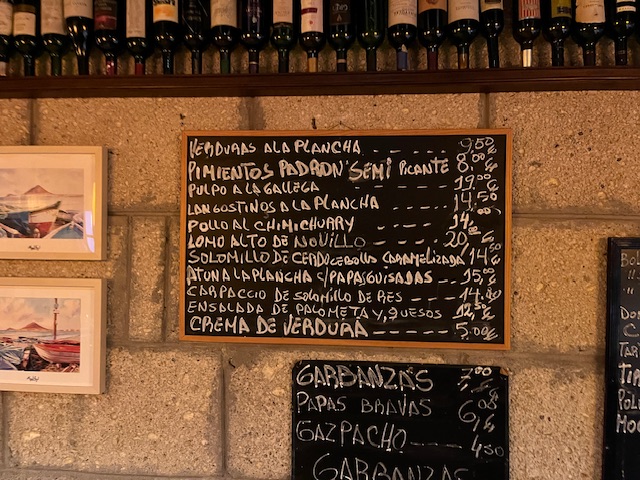 VERDURAS A LA PLANCHA - - - - 9,50 €
PIMIENTOS PADRON SEMI PICANTE 8,00 €
PULPO A LA GALLEGA - - - - 19,00 €
LANGOSTINOS A LA PLANCHA - - - 14,50
POLLO AL CHIMICHURRY - - - - 14,
LOMO ALTO DE NOVILLO - - - - 20,
SOLOMILLO DE CERDO CEBOLLA CARAMELIZADA 14,50
ATUN A LA PLANCHA C/PAPAS GUISADAS - - - 15,00
CARPACCIO DE SOLOMILLO DE RES - - - 14.00
ENSALADA DE PALOMETA Y, QUESOS - - - 12,50
CREMA DE VERDURA - - - - 5,00 €
GARBANZAS 7,00
PAPAS BRAVAS
GAZPACHO - - - - 4,50
GARBANZAS